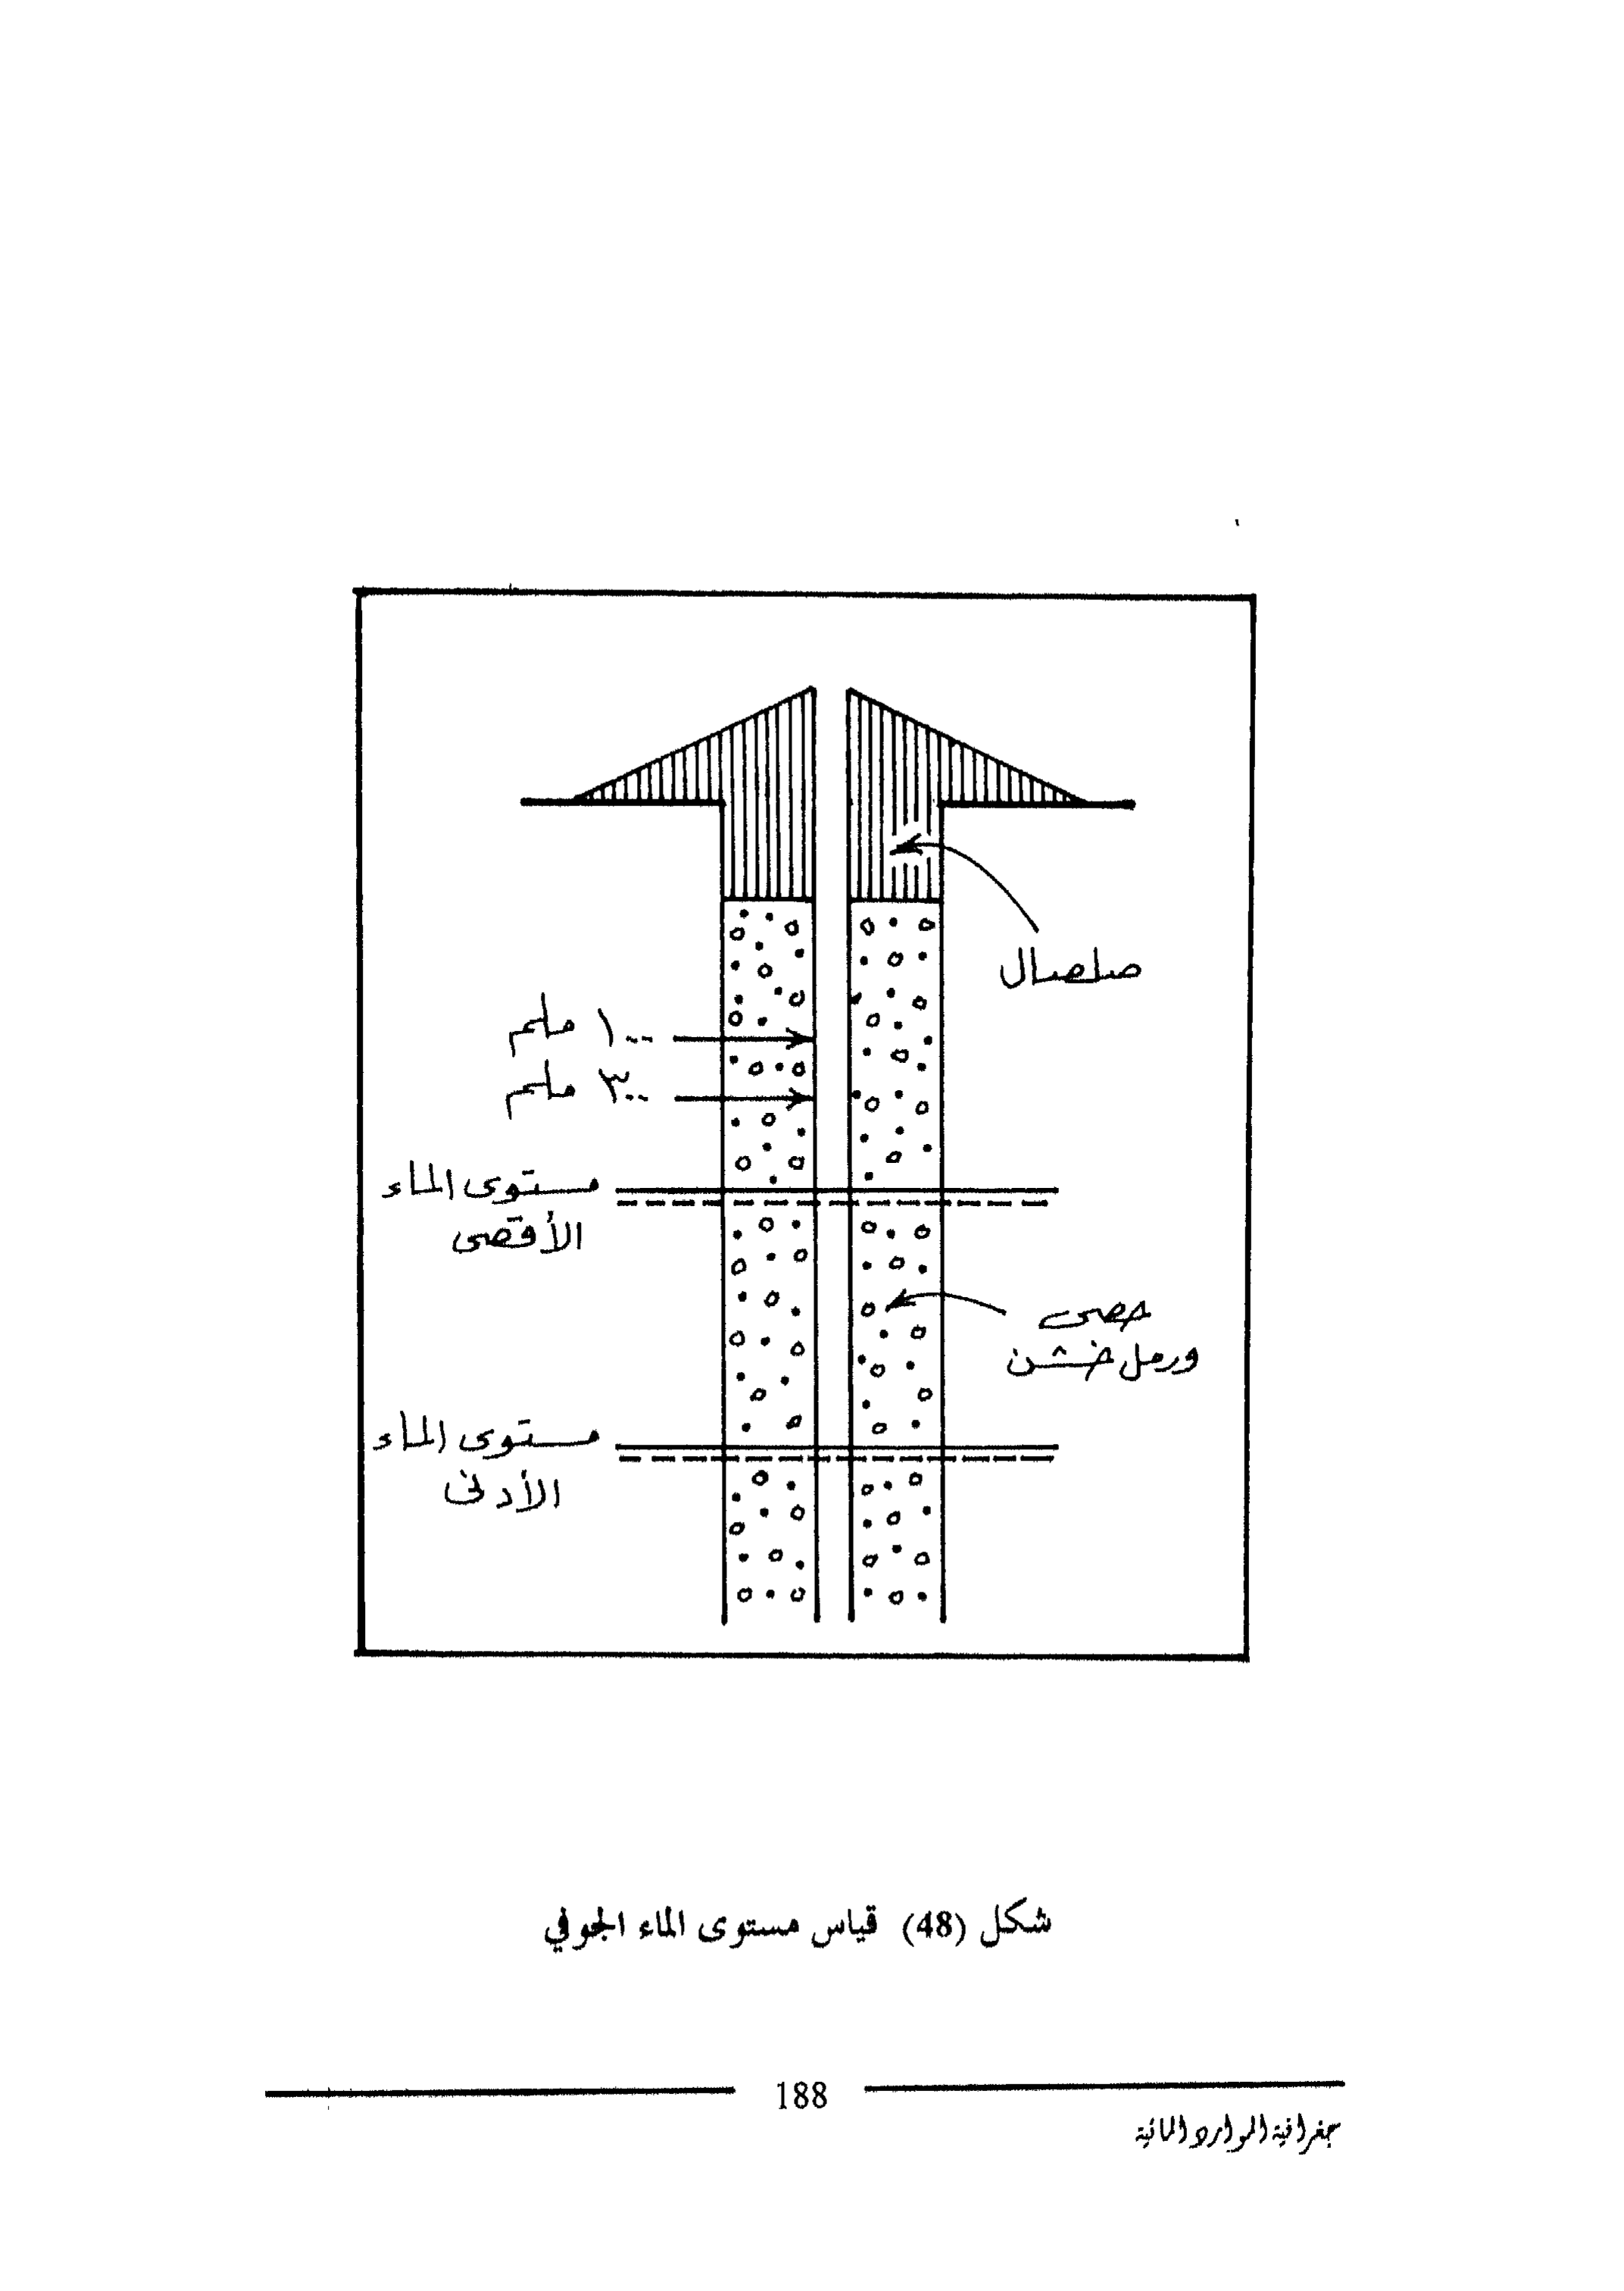 صلصال
١٠٠ ملم
٣٠٠ ملم
مستوى الماء
الأقصى
حصى
ورمل خشن
مستوى الماء
الأدنى
شكل (48) قياس مستوى الماء الجوفي
188
جغرافية الموارد المائية